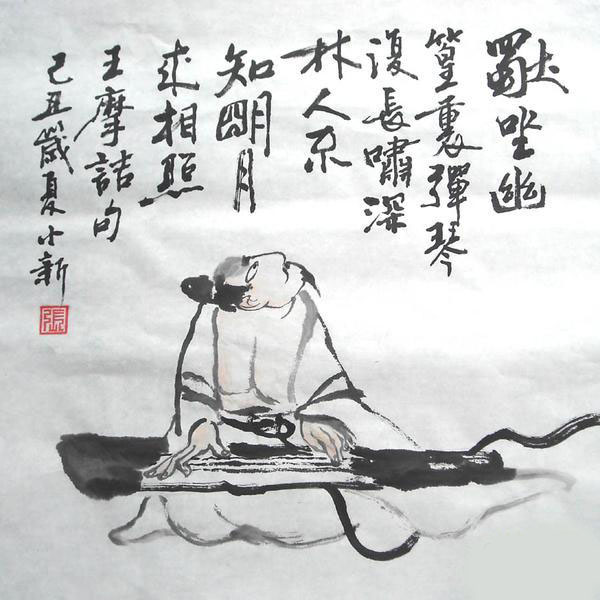 獨坐幽
篁裏彈琴
復長嘯深
林人不
知明月
來相照
王摩詰句
己丑歲夏小新
張